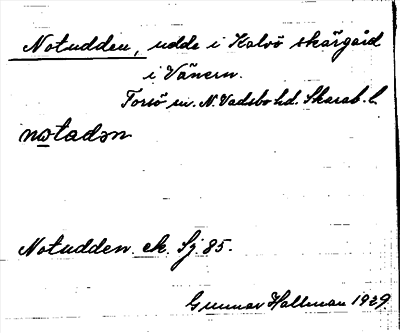 Notudden, udde i Kalvö skärgård
i Vänern.
Torsö sn. N. Vadsbo hd. Skarab. l.
notadən
Notudden ek. Sj. 85.
Gunnar Hallman 1929